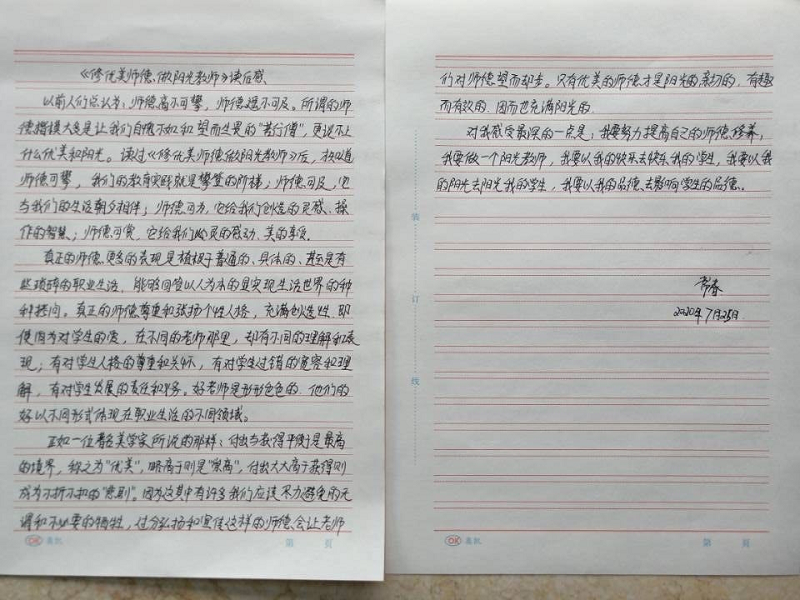 《修优美师德,做阳光教师》读后感
以前人们总认为:师德高不可攀,师德遥不可及。所谓的师
德楷模大多是让我们自愧不如和望而生畏的"苦行僧",更谈不上
什么优美和阳光。读过《修优美师德,做阳光教师》后,才知道
师德可攀,我们的教育实践就是攀登的阶梯;师德可及,它
与我们的生活朝夕相伴;师德可为,它给我们创造的灵感、操
作的智慧;师德可赏,它给我们心灵的感动、美的享受。
真正的师德,更多的表现是植根于普通的、具体的、甚至是有
些琐碎的职业生活,能够回答以人为本的具实现生活世界的种
种拷问。真正的师德尊重和张扬个性人格,充满创造性,即
使同为对学生的爱,在不同的老师那里,却有不同的理解和表
现;有对学生人格的尊重和关怀,有对学生过错的宽容和理
解,有对学生发展的责任和义务。好老师是形形色色的,他们的
好以不同形式体现在职业生活的不同领域。
正如一位著名美学家所说的那样:付出与获得平衡是最高
的境界,称之为"优美",略高于则是"崇高",付出大大高于获得则
成为不折不扣的"悲剧"。因为这其中有许多我们应该尽力避免的无
谓和不必要的牺牲,过分弘扬和宣传这样的师德,会让老师
OK 晨凯
第 页
们对师德望而却步。只有优美的师德才是阳光的,亲切的,有趣
而有效的,因而也充满阳光的。
对我感受最深的一点是,我要努力提高自己的师德修养,
我要做一个阳光教师,我要以我的快乐去快乐我的学生,我要以我
的阳光去阳光我的学生,我要以我的品德去影响学生的品德。
装
订
线
常春
2020年7月25日
OK 晨凯
第 页